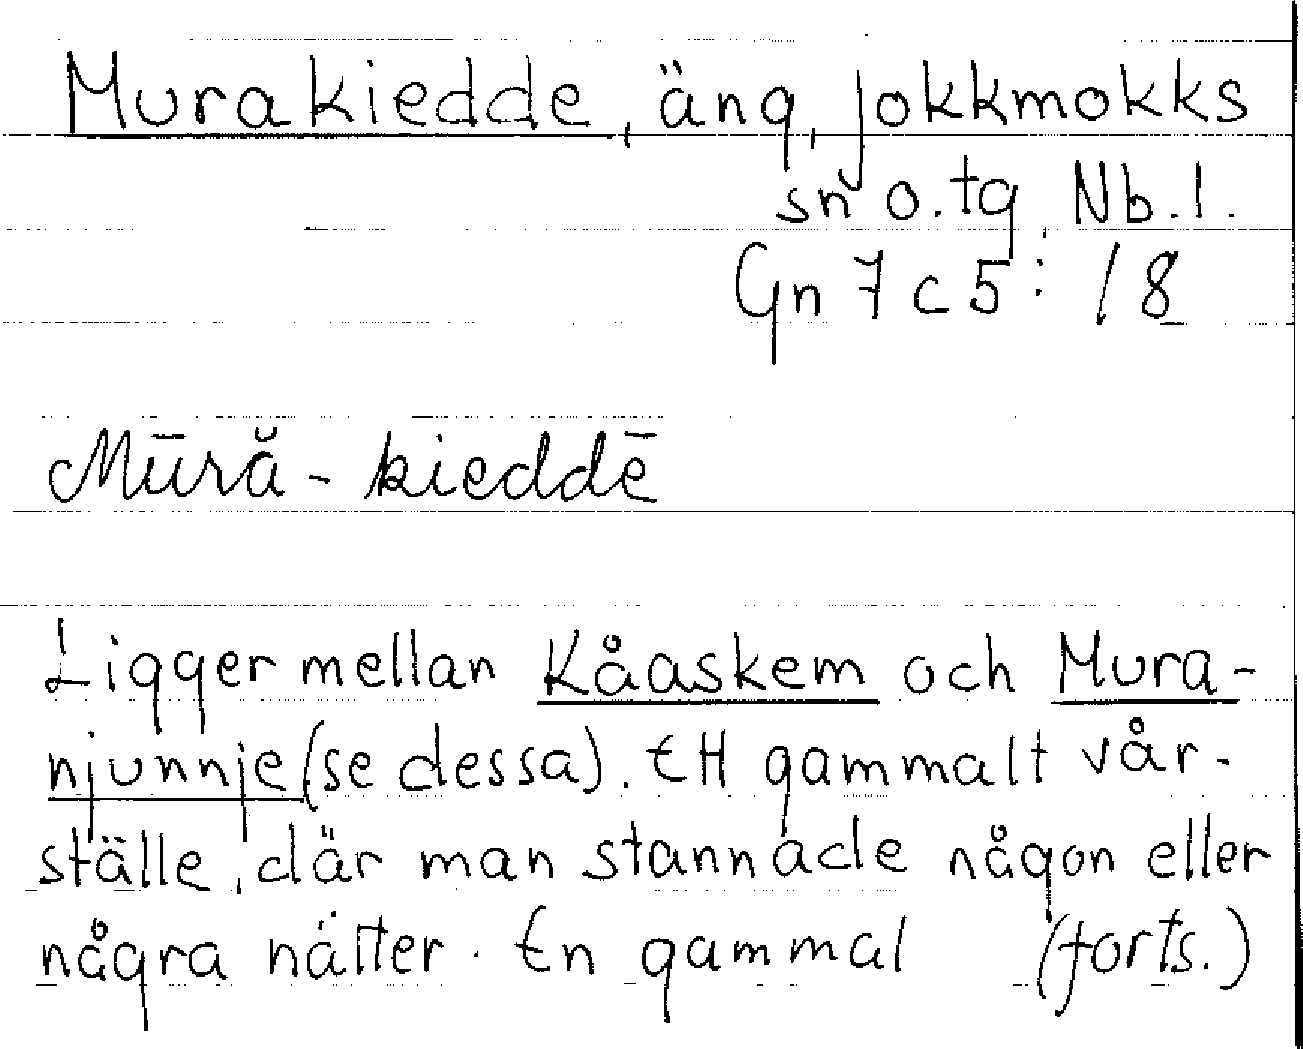 Murakiedde, äng, Jokkmokks
sn o. tg Nb. l.
Gn 7 c 5 : / 8
Mūră - kieddē
Ligger mellan Kåaskem och Mura-
njunnje (se dessa). Ett gammalt vår-
ställe, där man stannade någon eller
några nätter. En gammal (forts.)